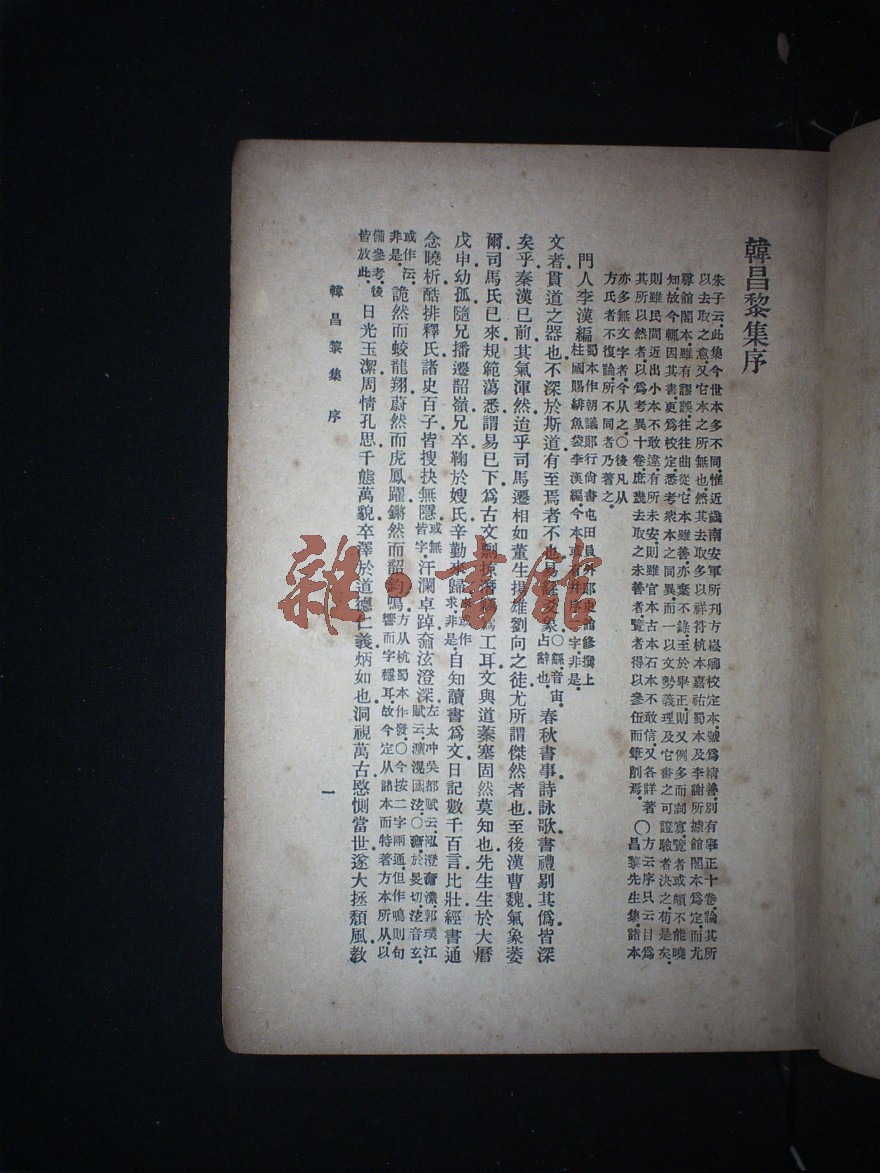 韓昌黎集序
朱子云此集今世本多不同惟近歲南安軍所刊方崧卿校定本號爲精善別有舉正十卷論其所
以去取之意又它本之所無也然其去取多以祥符杭本嘉祐蜀本及李謝所據館閣本爲定而尤
尊館閣本雖有謬誤往往曲從它本雖善亦棄不錄至於舉正則又例多而詞寡覽者或頗不能曉
知故今輒因其書更爲校定悉考衆本之同異而一以文勢義理及它書之可證驗者決之苟是矣
則雖民間近出小本不敢違有所未安則雖官本古本石本不敢信又各詳著
其所以然者以爲考異十卷庶幾去取之未善者覽者得以參伍而筆削焉〇昌黎先生集諸本
亦多無文字者今从之〇後凡从方云序只云目爲
方氏者不復論所不同者乃著之
門人李漢編蜀本作朝議郎行尚書屯田員外郎史館修撰上
柱國賜緋魚袋李漢編今本或
字非是
文者貫道之器也不深於斯道有至焉者不也易繇爻象〇繇音宙占辭也春秋書事詩詠歌書禮剔其僞皆深
矣乎秦漢已前其氣渾然迨乎司馬遷相如董生揚雄劉向之徒尤所謂傑然者也至後漢曹魏氣象萎
爾司馬氏已來規範蕩悉謂易已下爲古文剽掠潛竊爲工耳文與道蓁塞固然莫知也先生生於大曆
戊申幼孤隨兄播遷韶嶺兄卒鞠於嫂氏辛勤來歸來或作求非是自知讀書爲文日記數千百言比壯經書通
念曉析酷排釋氏諸史百子皆搜抉無隱或無皆字汗瀾卓踔奫泫澄深左太冲吳都賦云泓澄奫潫郭璞江賦云瀇滉囦泫〇奫於旻切泫音玄
或作沄非是詭然而蛟龍翔蔚然而虎鳳躍鏘然而韶鈞鳴方从杭蜀本作發〇今按二字兩通但作鳴則句響而字穩耳故今定从諸本而特著方本所从以
備參考後皆放此日光玉潔周情孔思千態萬貌卒澤於道德仁義炳如也洞視萬古愍惻當世遂大拯頹風教
韓昌黎集 序
一
雜·書館